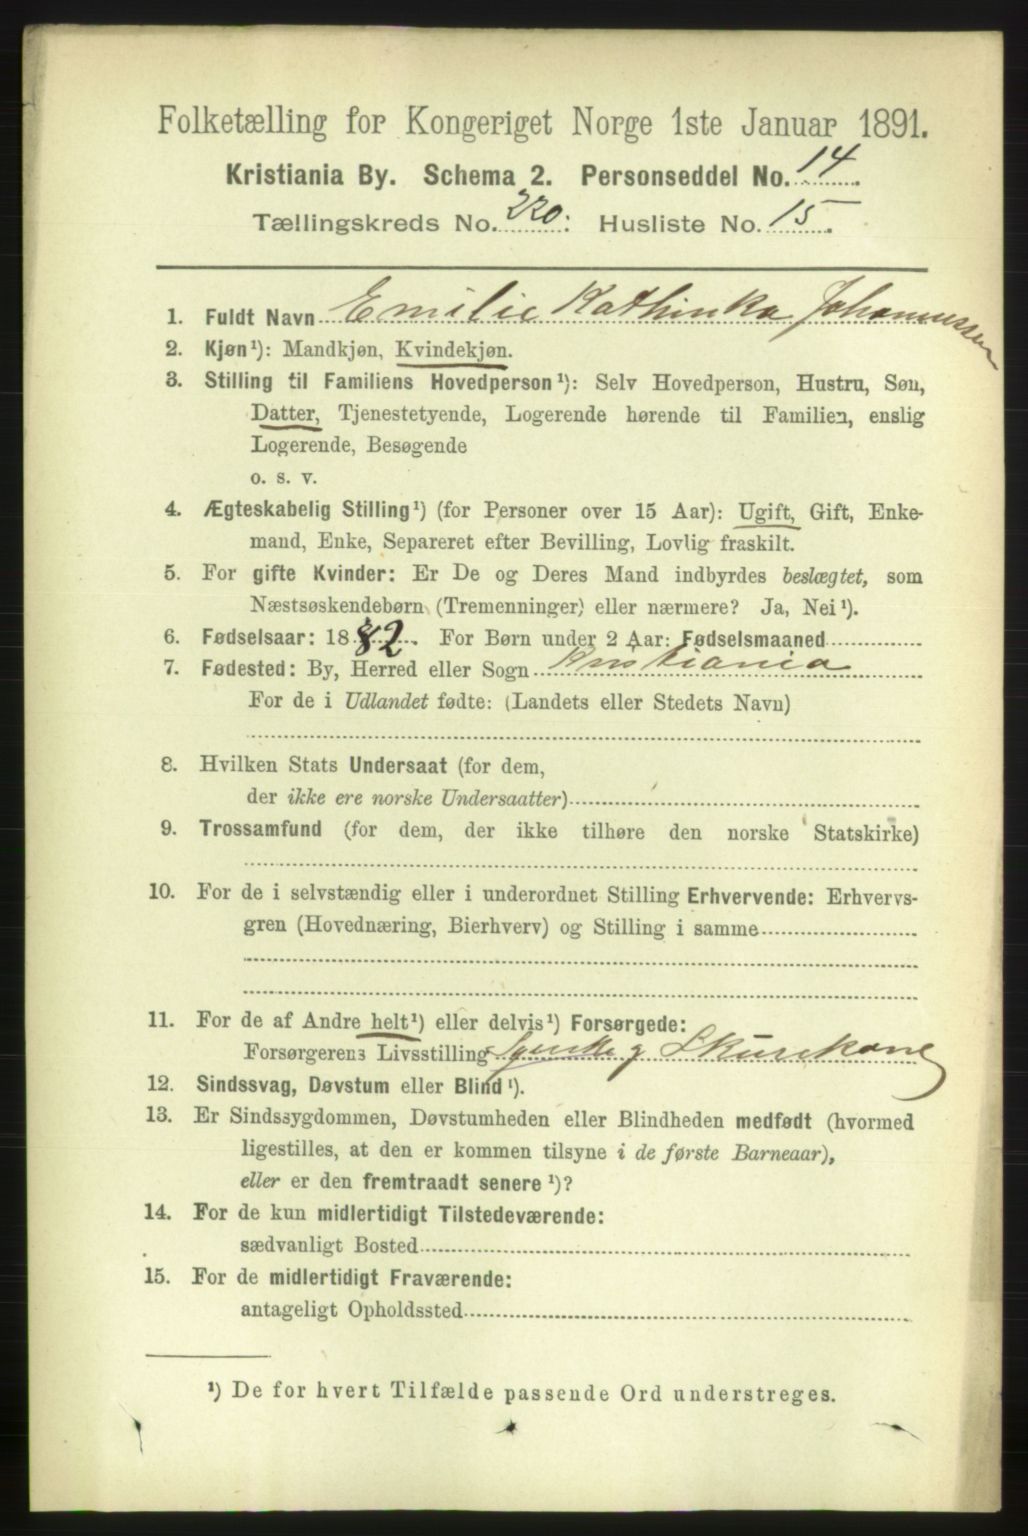 Folketælling for Kongeriget Norge 1ste Januar 1891.
Kristiania By. Schema 2. Personseddel No. 14.
Tællingskreds No. 220: Husliste No. 15.
1. Fuldt Navn Emilie Kathinka Johannessen
2. Kjøn¹): Mandkjøn, Kvindekjøn.
3. Stilling til Familiens Hovedperson¹): Selv Hovedperson, Hustru, Søn,
Datter, Tjenestetyende, Logerende hørende til Familien, enslig
Logerende, Besøgende
o. s. v.
4. Ægteskabelig Stilling¹) (for Personer over 15 Aar): Ugift, Gift, Enke-
mand, Enke, Separeret efter Bevilling, Lovlig fraskilt.
5. For gifte Kvinder: Er De og Deres Mand indbyrdes beslægtet, som
Næstsøskendebørn (Tremenninger) eller nærmere? Ja, Nei¹).
6. Fødselsaar: 1882. For Børn under 2 Aar: Fødselsmaaned
7. Fødested: By, Herred eller Sogn Kristiania
For de i Udlandet fødte: (Landets eller Stedets Navn)
8. Hvilken Stats Undersaat (for dem,
der ikke ere norske Undersaatter)
9. Trossamfund (for dem, der ikke tilhøre den norske Statskirke)
10. For de i selvstændig eller i underordnet Stilling Erhvervende: Erhvervs-
gren (Hovednæring, Bierhverv) og Stilling i samme
11. For de af Andre helt¹) eller delvis¹) Forsørgede:
Forsørgerens Livsstilling Skurekone
12. Sindssvag, Døvstum eller Blind¹).
13. Er Sindssygdommen, Døvstumheden eller Blindheden medfødt (hvormed
ligestilles, at den er kommen tilsyne i de første Barneaar),
eller er den fremtraadt senere¹)?
14. For de kun midlertidigt Tilstedeværende:
sædvanligt Bosted
15. For de midlertidigt Fraværende:
antageligt Opholdssted
¹) De for hvert Tilfælde passende Ord understreges.